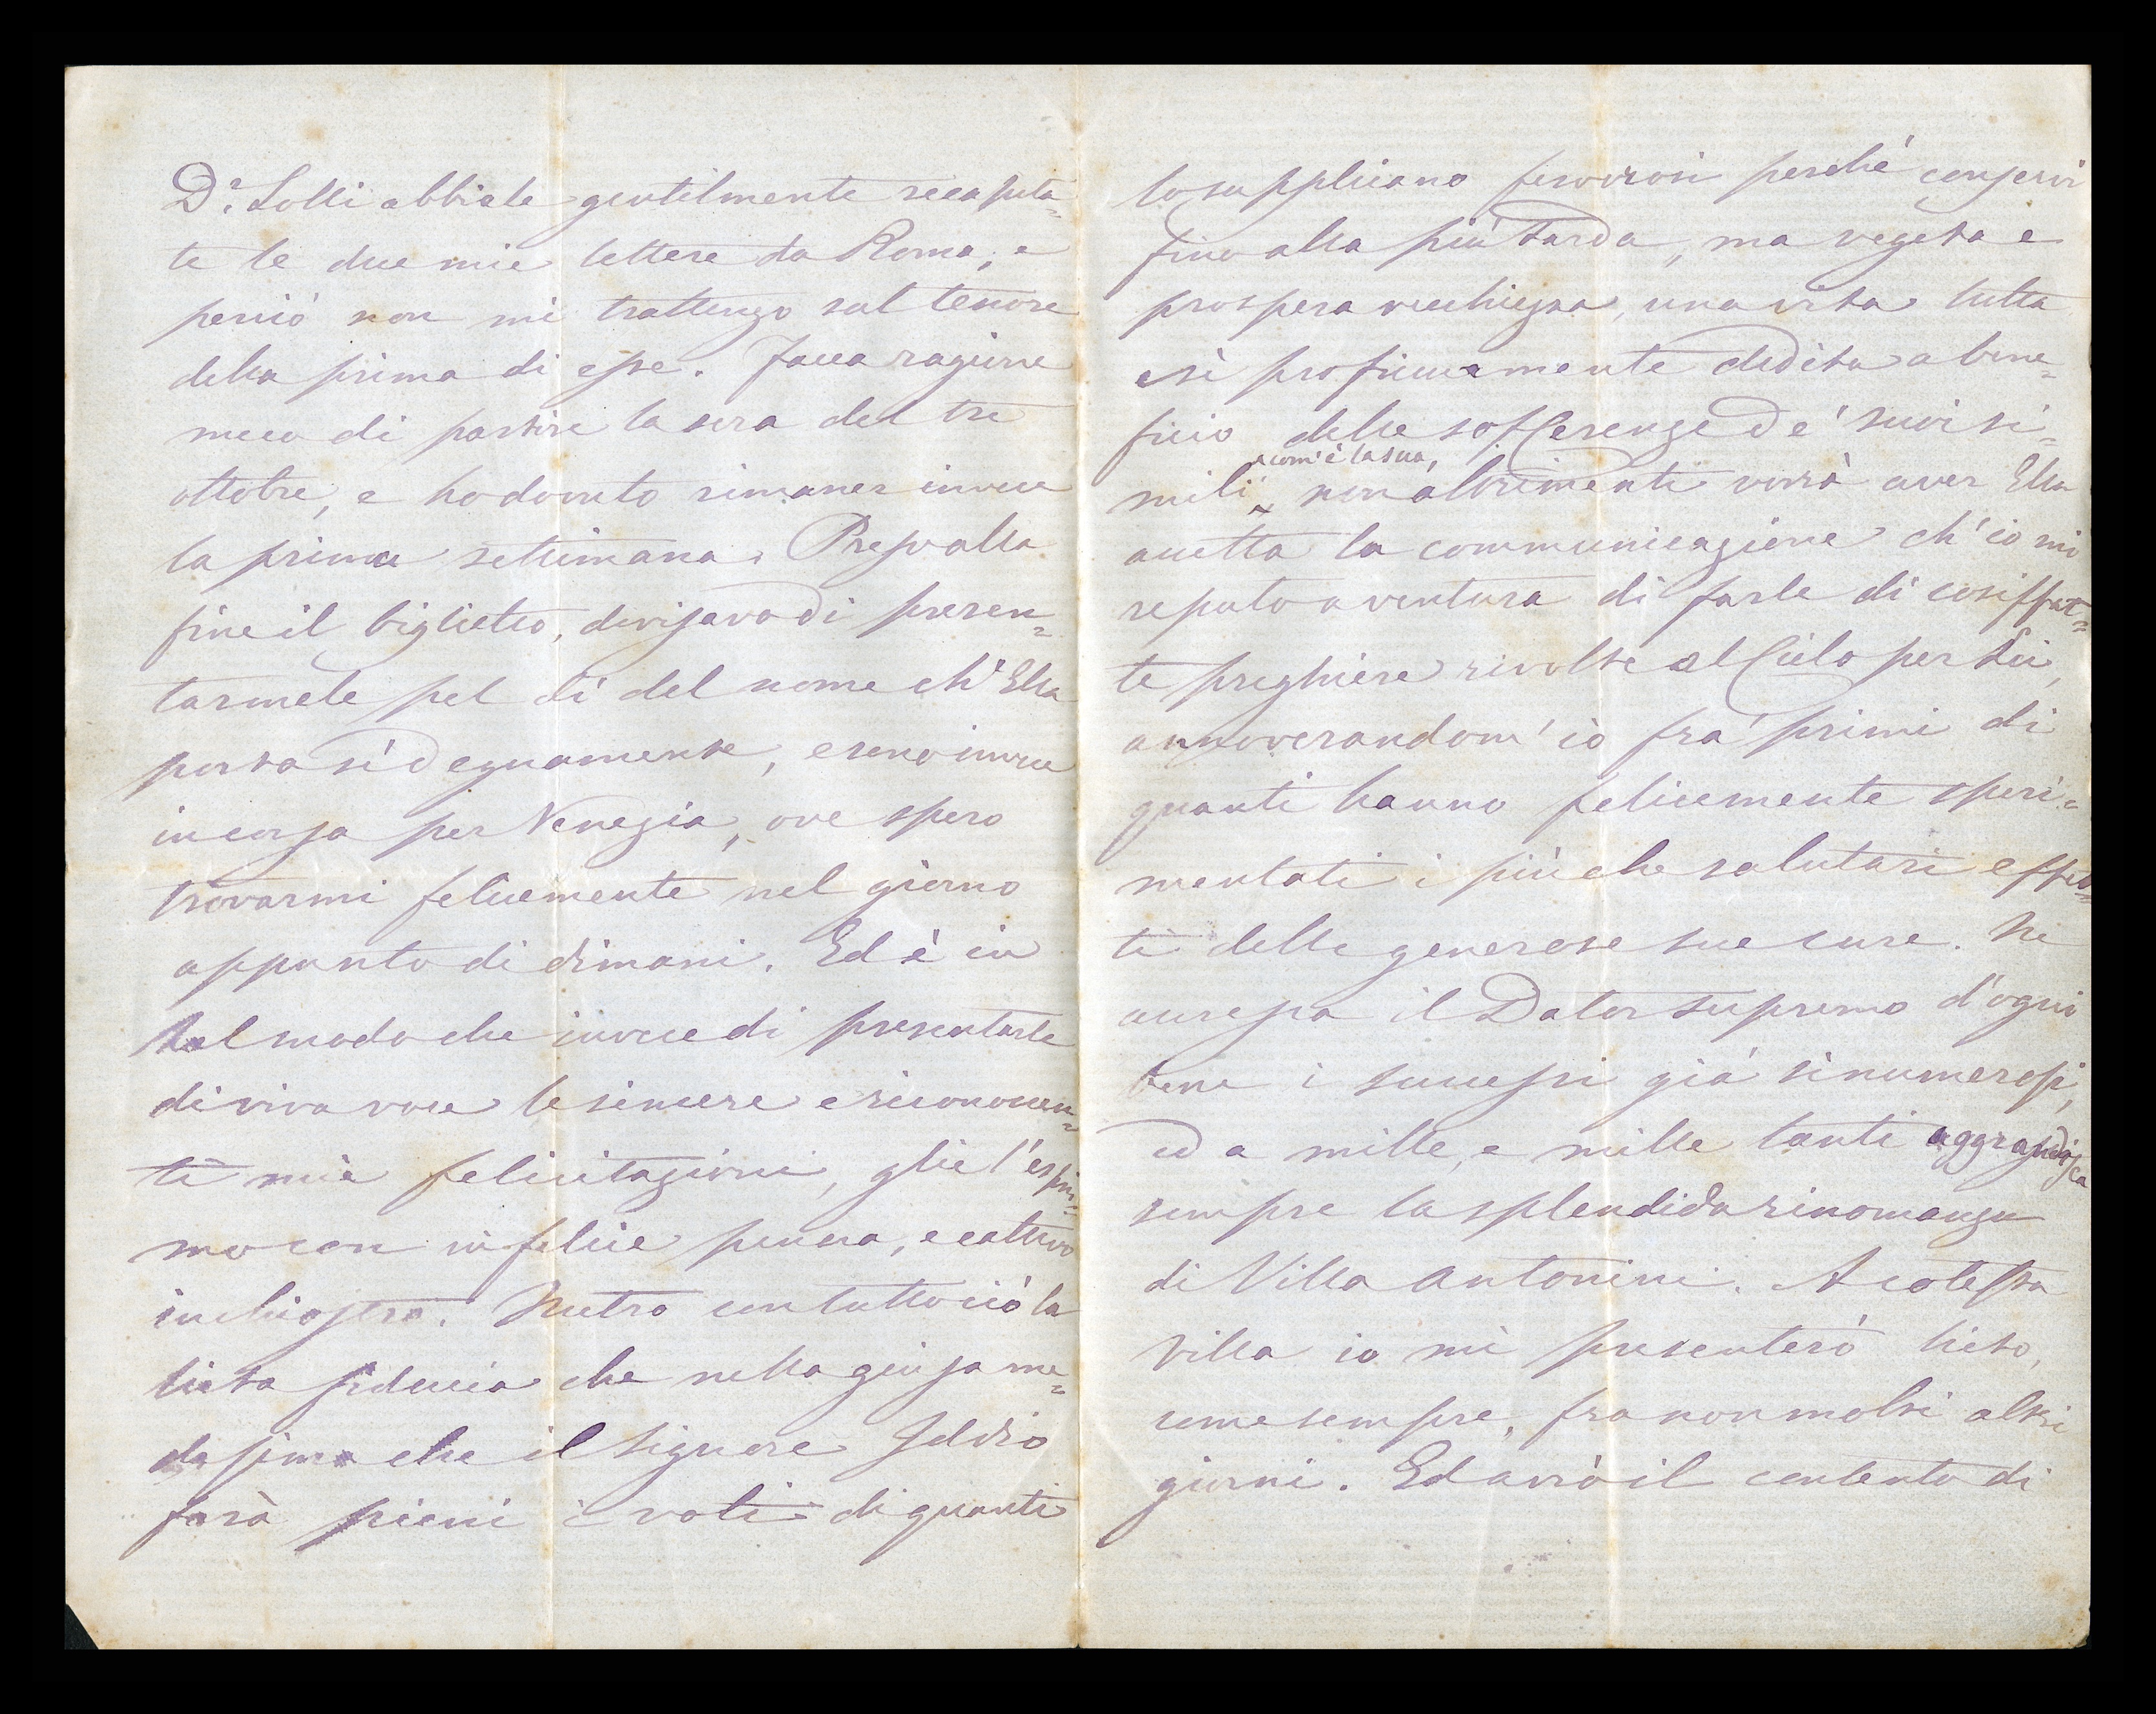 Dr. Lolli abbiale gentilmente recapita=
te le due mie lettere da Roma, e
perciò non mi trattengo sul tenore
della prima di esse. Facea ragione
meco di partire la sera del tre
ottobre, e ho dovuto rimaner invece
la prima settimana. Preso alla
fine il biglietto, divisavo di presen=
tarmele pel dì del nome ch'Ella
porta sì degnamente, e sono invece
in corsa per Venezia, ove spero
trovarmi felicemente nel giorno
appunto di dimani. Ed è in
tal modo che invece di presentarle
di viva voce le sincere e riconoscen=
ti mie felicitazioni, glie l'espri=
mo con infelice penna, e cattivo
inchiostro. Nutro con tutto ciò la
lieta fiducia che nella guisa me=
desima che il Signore Iddio
farà pieni i voti di quanti
lo supplicano fervorosi perchè conservi
fino alla più tarda, ma vegeta e
prospera vecchiezza, una vita tutta
sì proficuamente dedita a bene=
ficio delle sofferenze de' suoi si=
mili, com'è la sua, non altrimenti vorrà aver Ella
accetta la communicazione ch'io mi
reputo a ventura di farle di cosiffat=
te preghiere rivolte al Cielo per Lei,
annoverandom'io fra' primi di
quanti hanno felicemente speri=
mentati i più che salutari effet=
ti delle generose sue cure. Ne
accresca il Dator supremo d'ogni
bene i successi già sì numerosi,
ed a mille, e mille tanti aggrandisca
sempre la splendida rinomanza
di Villa Antonini. A cotesta
Villa io mi presenterò lieto,
come sempre, fra non molti altri
giorni. Ed avrò il contento di